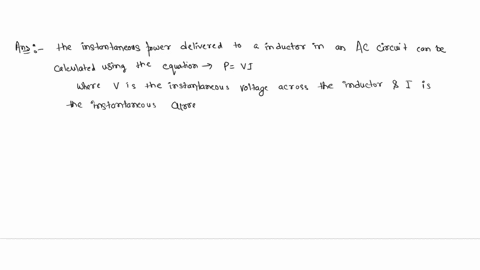 Ans:- the instantaneous power delivered to a inductor in an AC circuit can be
calculated using the equation → P= VI
where V is the instantaneous voltage across the inductor & I is
the instantaneous